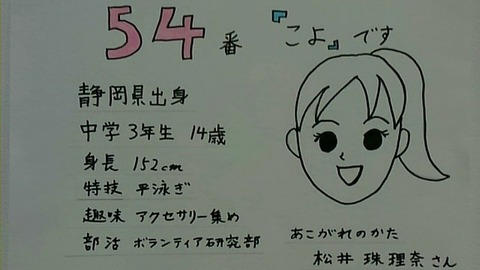 54番
『こよ』です
静岡県出身
中学3年生 14歳
身長 152cm
特技 平泳ぎ
趣味 アクセサリー集め
部活 ボランティア研究部
あこがれのかた
松井 珠理奈さん